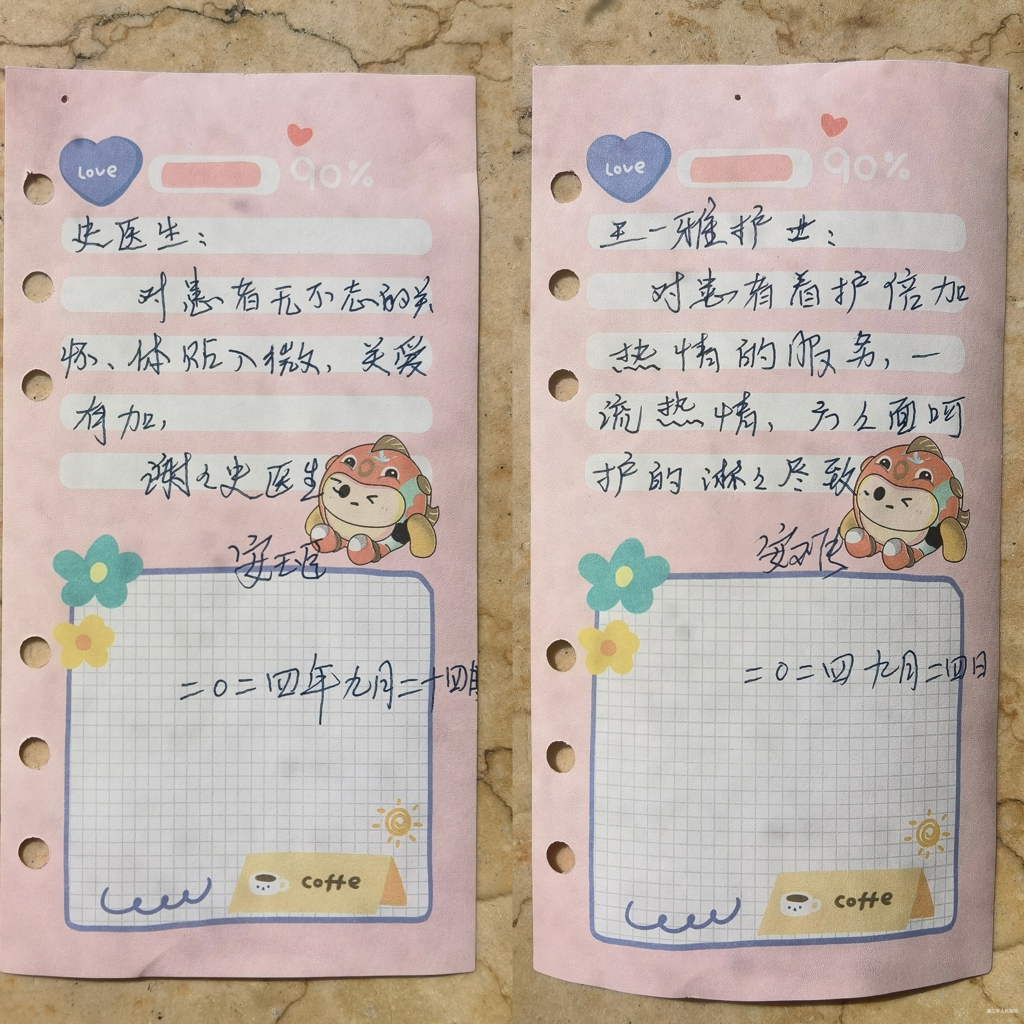 love
90%
史医生：
对患者无不忘的关
怀、体贴入微，关爱
有加，
谢々史医生
二〇二四年九月二十四日
coffe
love
90%
王一雅护士：
对患者看护倍加
热情的服务，一
流热情，方々面呵
护的淋々尽致
二〇二四 九月二四日
coffe